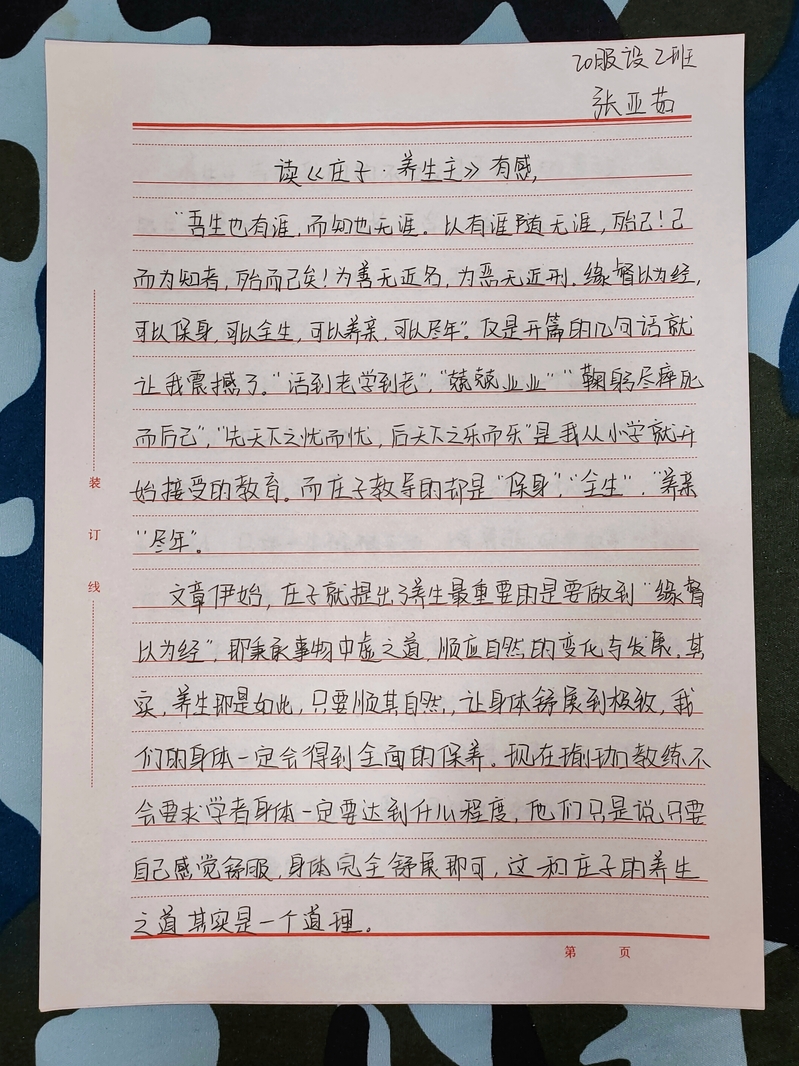 20服设2班
张亚茹
读《庄子·养生主》有感,
“吾生也有涯,而知也无涯。以有涯随无涯,殆已!已
而为知者,殆而已矣!为善无近名,为恶无近刑。缘督以为经,
可以保身,可以全生,可以养亲,可以尽年”。仅是开篇的几句话就
让我震撼了。“活到老学到老”,“兢兢业业”“鞠躬尽瘁死
而后已”,“先天下之忧而忧,后天下之乐而乐”是我从小学就开
始接受的教育。而庄子教导的却是“保身”,“全生”,“养亲
“尽年”。
文章伊始,庄子就提出了养生最重要的是要做到“缘督
以为经”,即秉承事物中虚之道,顺应自然的变化与发展。其
实,养生即是如此,只要顺其自然,让身体舒展到极致,我
们的身体一定会得到全面的保养。现在瑜伽教练不
会要求学者身体一定要达到什么程度,他们只是说只要
自己感觉舒服,身体完全舒展即可,这和庄子的养生
之道其实是一个道理。
装
订
线
第 页